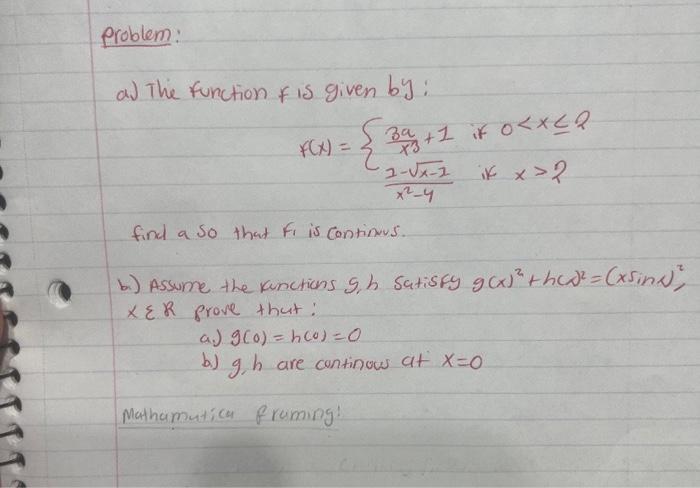 Problem:
a) The function f is given by:
f(x) = { 3a/x³ + 1 if 0 < x ≤ 2
1-√x-1 / x²-4 if x > 2
find a so that f is continus.
b) Assume the functions g, h satisfy g(x)² + h(x)² = (x sin x)²,
x ∈ R prove that:
a) g(0) = h(0) = 0
b) g, h are continous at x=0
Mathamutica framing!